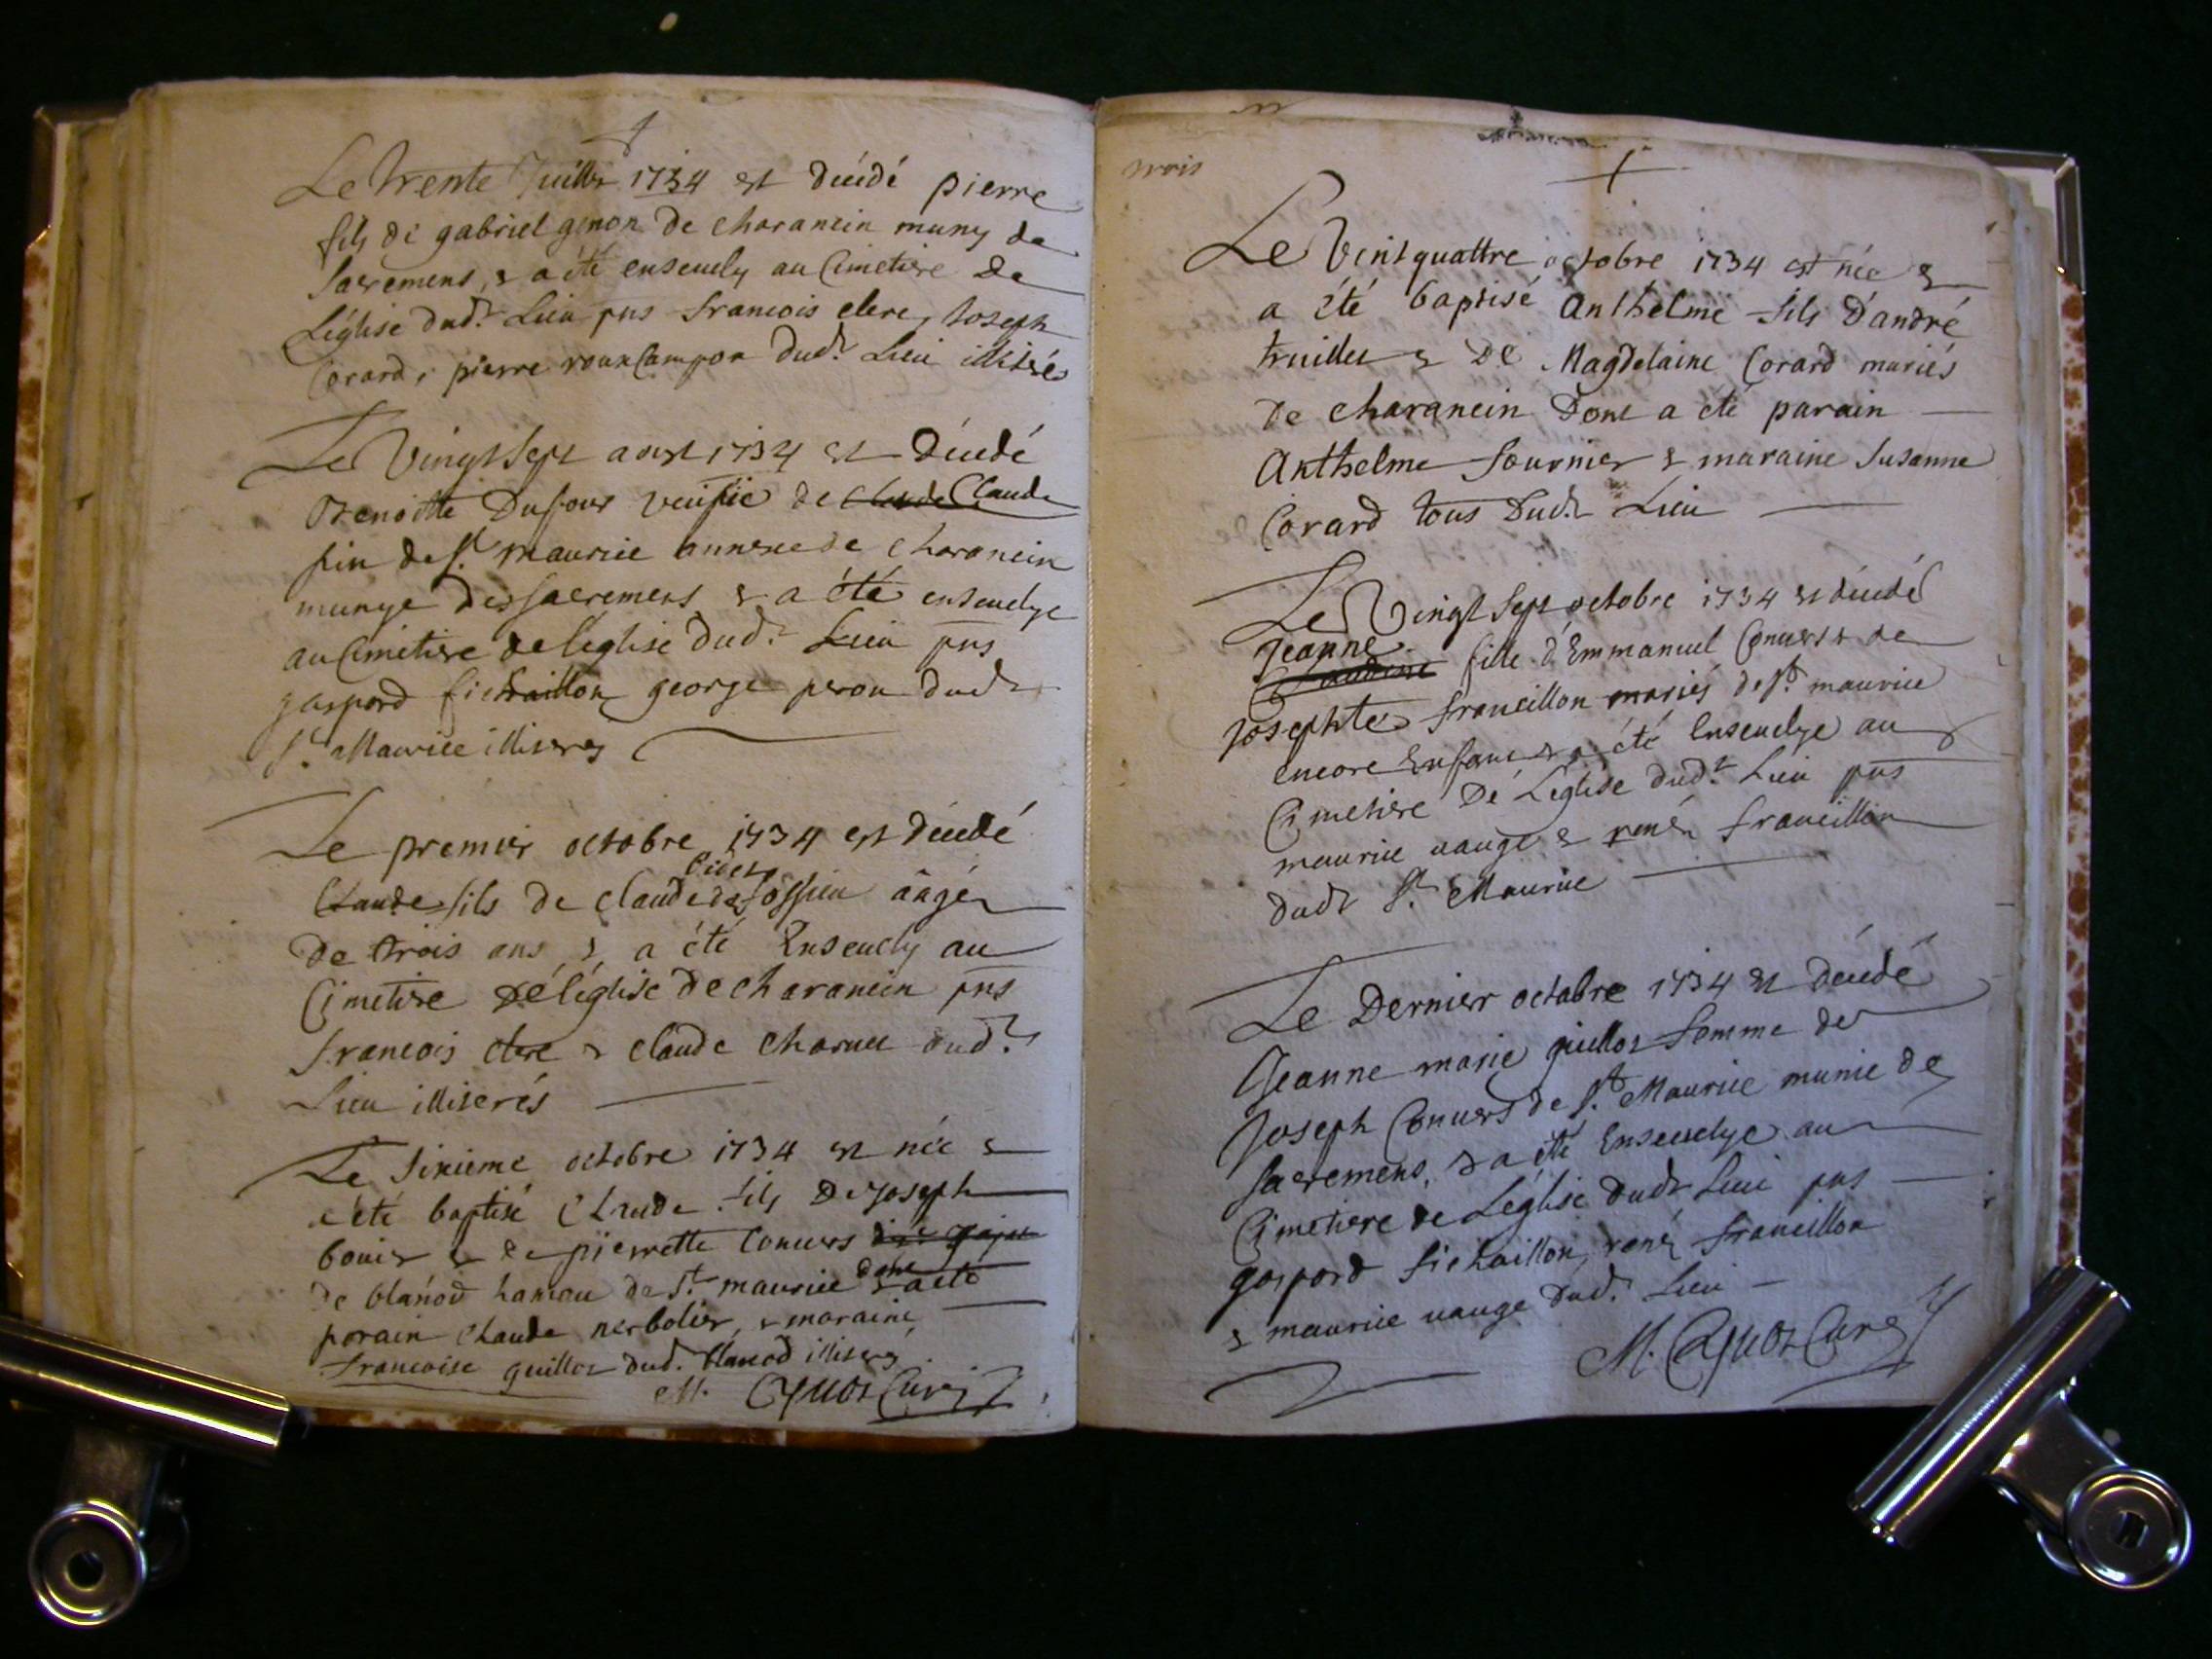 Le trente Juillet 1734 est décédé pierre
fils de gabriel genon de charancin muny de
sacremens, & a été ensevely au Cimetiere de
Léglise dud.t Lieu pns francois clerc, Joseph
Corard, pierre roux Campon dud.t Lieu illiterés
Le Vingt sept aoust 1734 est décédé
Benoitte Dufour veufve de Claude Claude
fin de st. maurice annexe de charancin
munye des sacremens & a été ensevelye
au Cimetiere de leglise dud.t Lieu pns
gaspard fichaillon george peron dudt
st. Maurice illiteres
Le premier octobre 1734 est décédé
Cider
Claude fils de claude de sossieu aagé
de trois ans & a été Ensevely au
Cimetiere dé léglise de charancin pns
francois clerc & claude charvet dud.t
Lieu illiterés
Le sixieme octobre 1734 est née &
a été baptisé Claude fils De Joseph
bovier & de pierrette Convers
de blanod hameau de st. maurice dont a été
parain Claude nerbolier, & maraine
francoise guillot dud. blanod illiteres
M. Cayuot Curé
trois
Le Vint quattre octobre 1734 est née &
a été baptisé Anthelme fils D'andré
truillet & De Magdelaine Corard mariés
de charancin Dont a été parain
Anthelme fournier & maraine Susanne
Corard tous Dudt Lieu
Le Vingt sept octobre 1734 est décédé
Jeanne
fille d'Emmanuel Convers & de
Josephte francillon mariés de st. maurice
encore Enfant & a été Ensevelye au
Cimetiere De Léglise dud.t Lieu pns
maurice vauge & rené francillon
dudt st. Maurice
Le Dernier octobre 1734 est Décédé
Jeanne marie guillot femme de
Joseph Convers de st. Maurice munie de
sacremens, & a été Ensevelye au
Cimetiere de Léglise dudt Lieu pns
gaspard fichaillon, rené francillon
& maurice vauge Dud. Lieu
M. Cayuot Curé